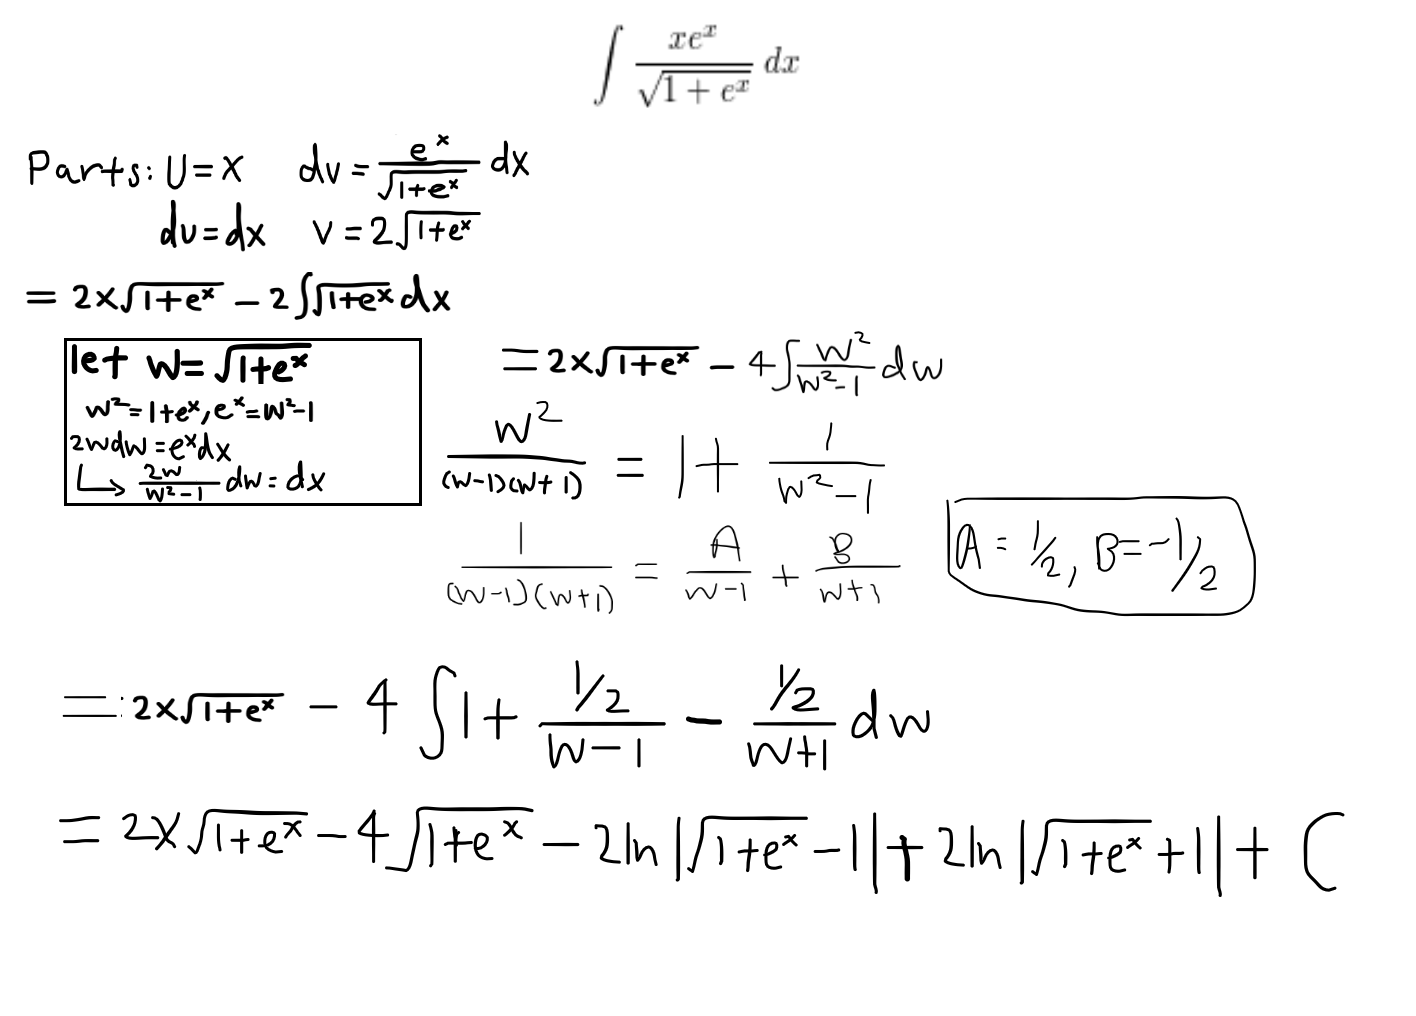 ∫ xe^x / √(1 + e^x) dx
Parts: U = x   dv = e^x / √(1+e^x) dx
du = dx   v = 2√(1+e^x)
= 2x√(1+e^x) − 2∫√(1+e^x) dx
let w = √(1+e^x)
w² = 1+e^x, e^x = w²−1
2w dw = e^x dx
↳ 2w / (w²−1) dw = dx
= 2x√(1+e^x) − 4∫ w² / (w²−1) dw
w² / ((w−1)(w+1)) = 1 + 1 / (w²−1)
1 / ((w−1)(w+1)) = A / (w−1) + B / (w+1)
A = 1/2, B = −1/2
= 2x√(1+e^x) − 4∫ 1 + (1/2) / (w−1) − (1/2) / (w+1) dw
= 2x√(1+e^x) − 4√(1+e^x) − 2ln|√(1+e^x) − 1| + 2ln|√(1+e^x) + 1| + C